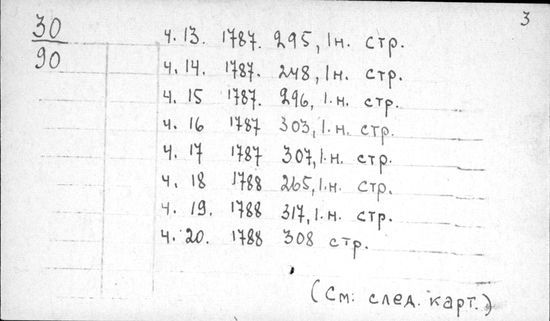 3
30
90
ч. 13. 1787. 295, 1н. стр.
ч. 14. 1787. 248, 1н. стр.
ч. 15 1787. 296, 1.н. стр.
ч. 16 1787 303, 1.н. стр.
ч. 17 1787 307, 1.н. стр.
ч. 18 1788 265, 1.н. стр.
ч. 19. 1788 317, 1.н. стр.
ч. 20. 1788 308 стр.
(См: след. карт.)